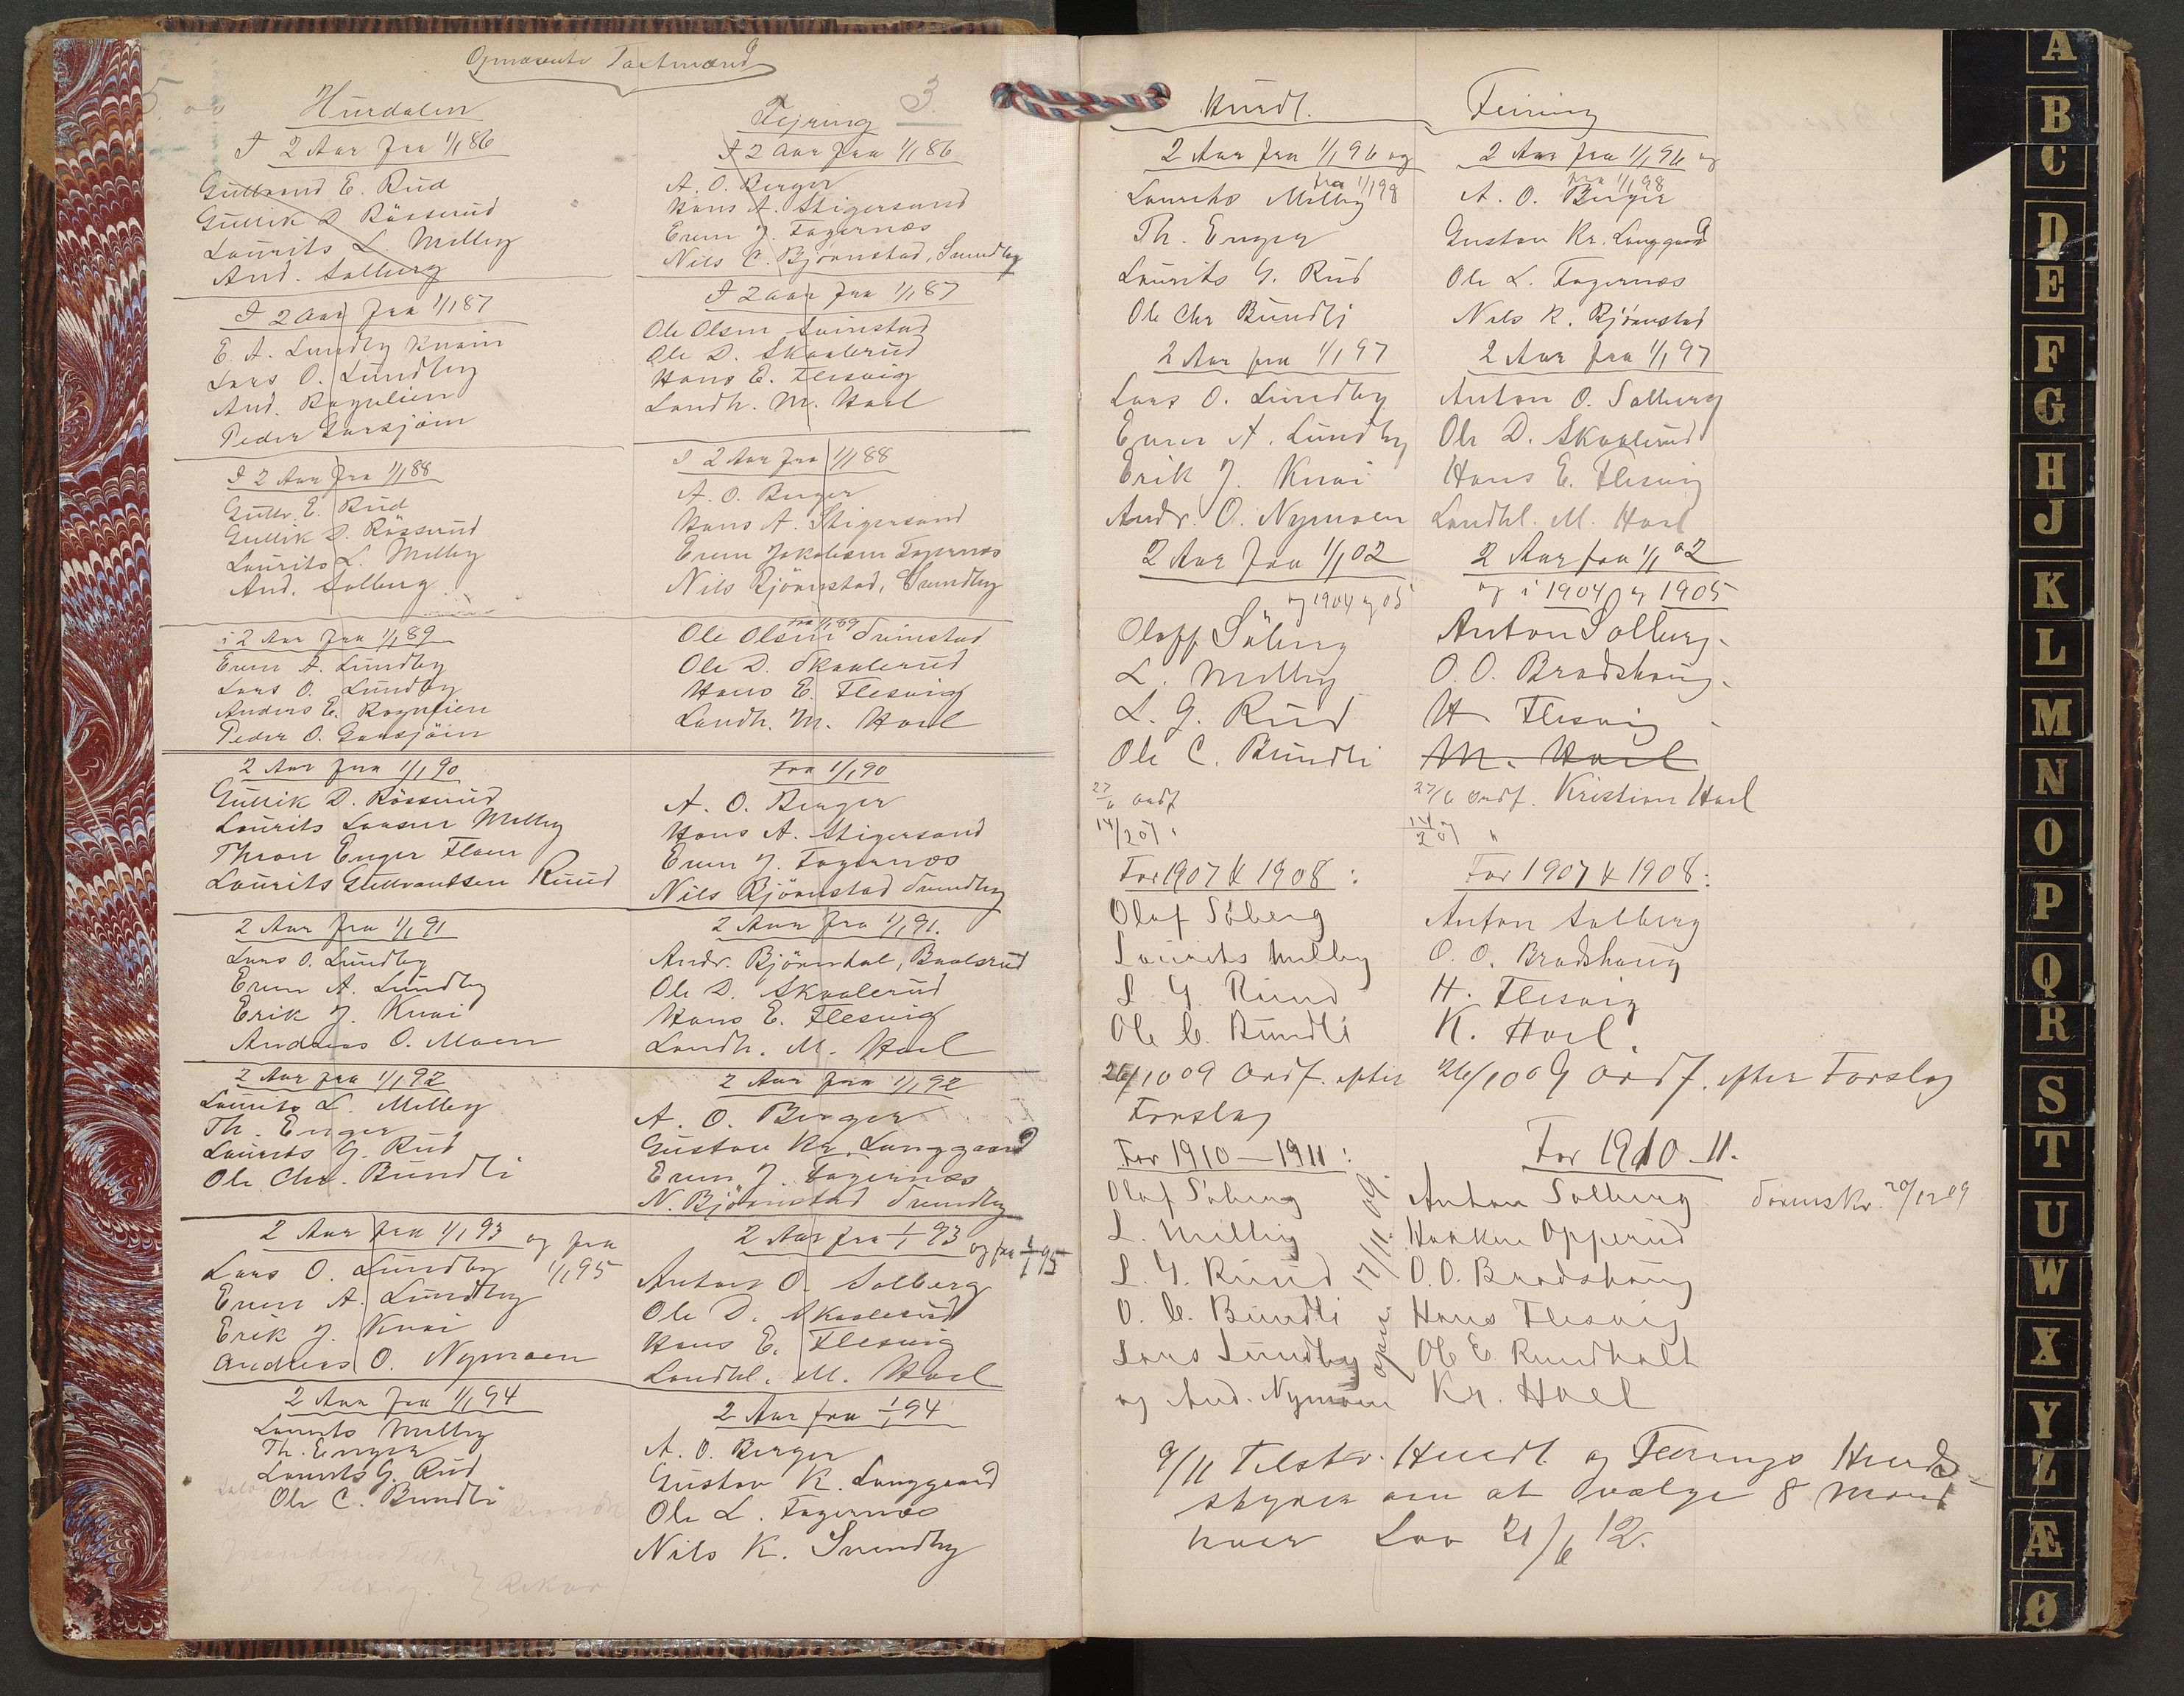 Opnævnte Tastmænd
Hurdalen
I 2 Aar fra 1/1 86
Gulbrand E. Rud
Gullik D. Rösserud
Laurits L. Melby
And. Solberg
I 2 Aar fra 1/1 87
E. A. Lundby Knain
Lars O. Lundby
And. Rognlien
Peder Garsjøen
I 2 Aar fra 1/1 88
Gulbr. E. Rud
Gullik D. Rösserud
Laurits L. Melby
And. Solberg
i 2 Aar fra 1/1 89
Even A. Lundby
Lars O. Lundby
Anders E. Rognlien
Peder O. Garsjøen
2 Aar fra 1/1 90
Gullik D. Rösserud
Laurits Larsen Melby
Thron Enger Floen
Laurits Gulbrandsen Ruud
2 Aar fra 1/1 91
Lars O. Lundby
Even A. Lundby
Erik J. Knai
Andreas O. Moen
2 Aar fra 1/1 92
Laurits L. Melby
Th. Enger
Laurits G. Rud
Ole Chr. Bundli
2 Aar fra 1/1 93 og fra 1/1 95
Lars O. Lundby
Even A. Lundby
Erik J. Knai
Andreas O. Nymoen
2 Aar fra 1/1 94
Laurits Melby
Th. Enger
Laurits G. Rud
Ole C. Bundli
3.
Fejring
I 2 Aar fra 1/1 86
A. O. Berger
Hans A. Stigersand
Even J. Fagernæs
Nils C. Bjørnstad, Sundby
I 2 Aar fra 1/1 87
Ole Olsen Svinstad
Ole D. Skaalerud
Hans E. Flesvig
Landh. M. Hoel
I 2 Aar fra 1/1 88
A. O. Berger
Hans A. Stigersand
Even Jakobsen Fagernæs
Nils Bjørnstad, Srundby
fra 1/1 89
Ole Olsen Svinstad
Ole D. Skaalerud
Hans E. Flesvig
Landh. M. Hoel
Fra 1/1 90
A. O. Berger
Hans A. Stigersand
Even J. Fagernæs
Nils Bjørnstad Srundby
2 Aar fra 1/1 91.
Andr. Bjørnstad, Baalsrud
Ole D. Skaalerud
Hans E. Flesvig
Landh. M. Hoel
2 Aar fra 1/1 92
A. O. Berger
Gustav Kr. Langgaard
Even J. Fagernæs
N. Bjørnstad Srundby
2 Aar fra 1/1 93 og fra 1/1 95
Anton O. Solberg
Ole D. Skaalerud
Hans E. Flesvig
Landhl. M. Hoel
2 Aar fra 1/1 94
A. O. Berger
Gustav K. Langgaard
Ole L. Fagernæs
Nils K. Srundby
Hurdl.
2 Aar fra 1/1 96 og
fra 1/1 98
Laurits Melby
Th. Enger
Laurits G. Rud
Ole Chr Bundli
2 Aar fra 1/1 97
Lars O. Lundby
Even A. Lundby
Erik J. Knai
Andr. O. Nymoen
2 Aar fra 1/1 02
og 1904 og 05
Oloff Söberg
L. Melby
L. G. Rud
Ole C. Bundli
27/6 Ordf
14/2 07 "
For 1907 & 1908:
Olaf Söberg
Laurits Melby
L. G. Ruud
Ole C. Bundli
26/10 09 Ordf. efter
Forslag
For 1910 - 1911:
Olaf Söberg
L. Melby
L. G. Ruud
O. C. Bundli
Lars Lundby
og And. Nymoen
opn. 17/11. 09.
Feiring
2 Aar fra 1/1 96 og
fra 1/1 98
A. O. Berger
Gustav Kr. Langgaard
Ole L. Fagernæs
Nils K. Bjørnstad
2 Aar fra 1/1 97
Anton O. Solberg
Ole D. Skaalerud
Hans E. Flesvig
Landhl. M. Hoel
2 Aar fra 1/1 02
og i 1904 og 1905
Anton Solberg.
O. O. Bradshaug.
H. Flesvig
M. Hoel
27/6 Ordf. Kristian Hoel
14/2 07 "
For 1907 & 1908:
Anton Solberg
O. O. Bradshaug
H. Flesvig
K. Hoel.
26/10 09 Ordf. efter Forslag
For 1910-11.
Anton Solberg
Haaken Opperud
O. O. Bradshaug
Hans Flesvig
Ole E Rundholt
Kr. Hoel
20/12 09
9/11 Tilskr. Hurdl. og Feirings Herreds-
styrer om at vælge 8 Mænd
hver Lov 21/6 12.
A
B
C
D
E
F
G
H
J
K
L
M
N
O
P
Q
R
S
T
U
W
X
Y
Z
Æ
Ø